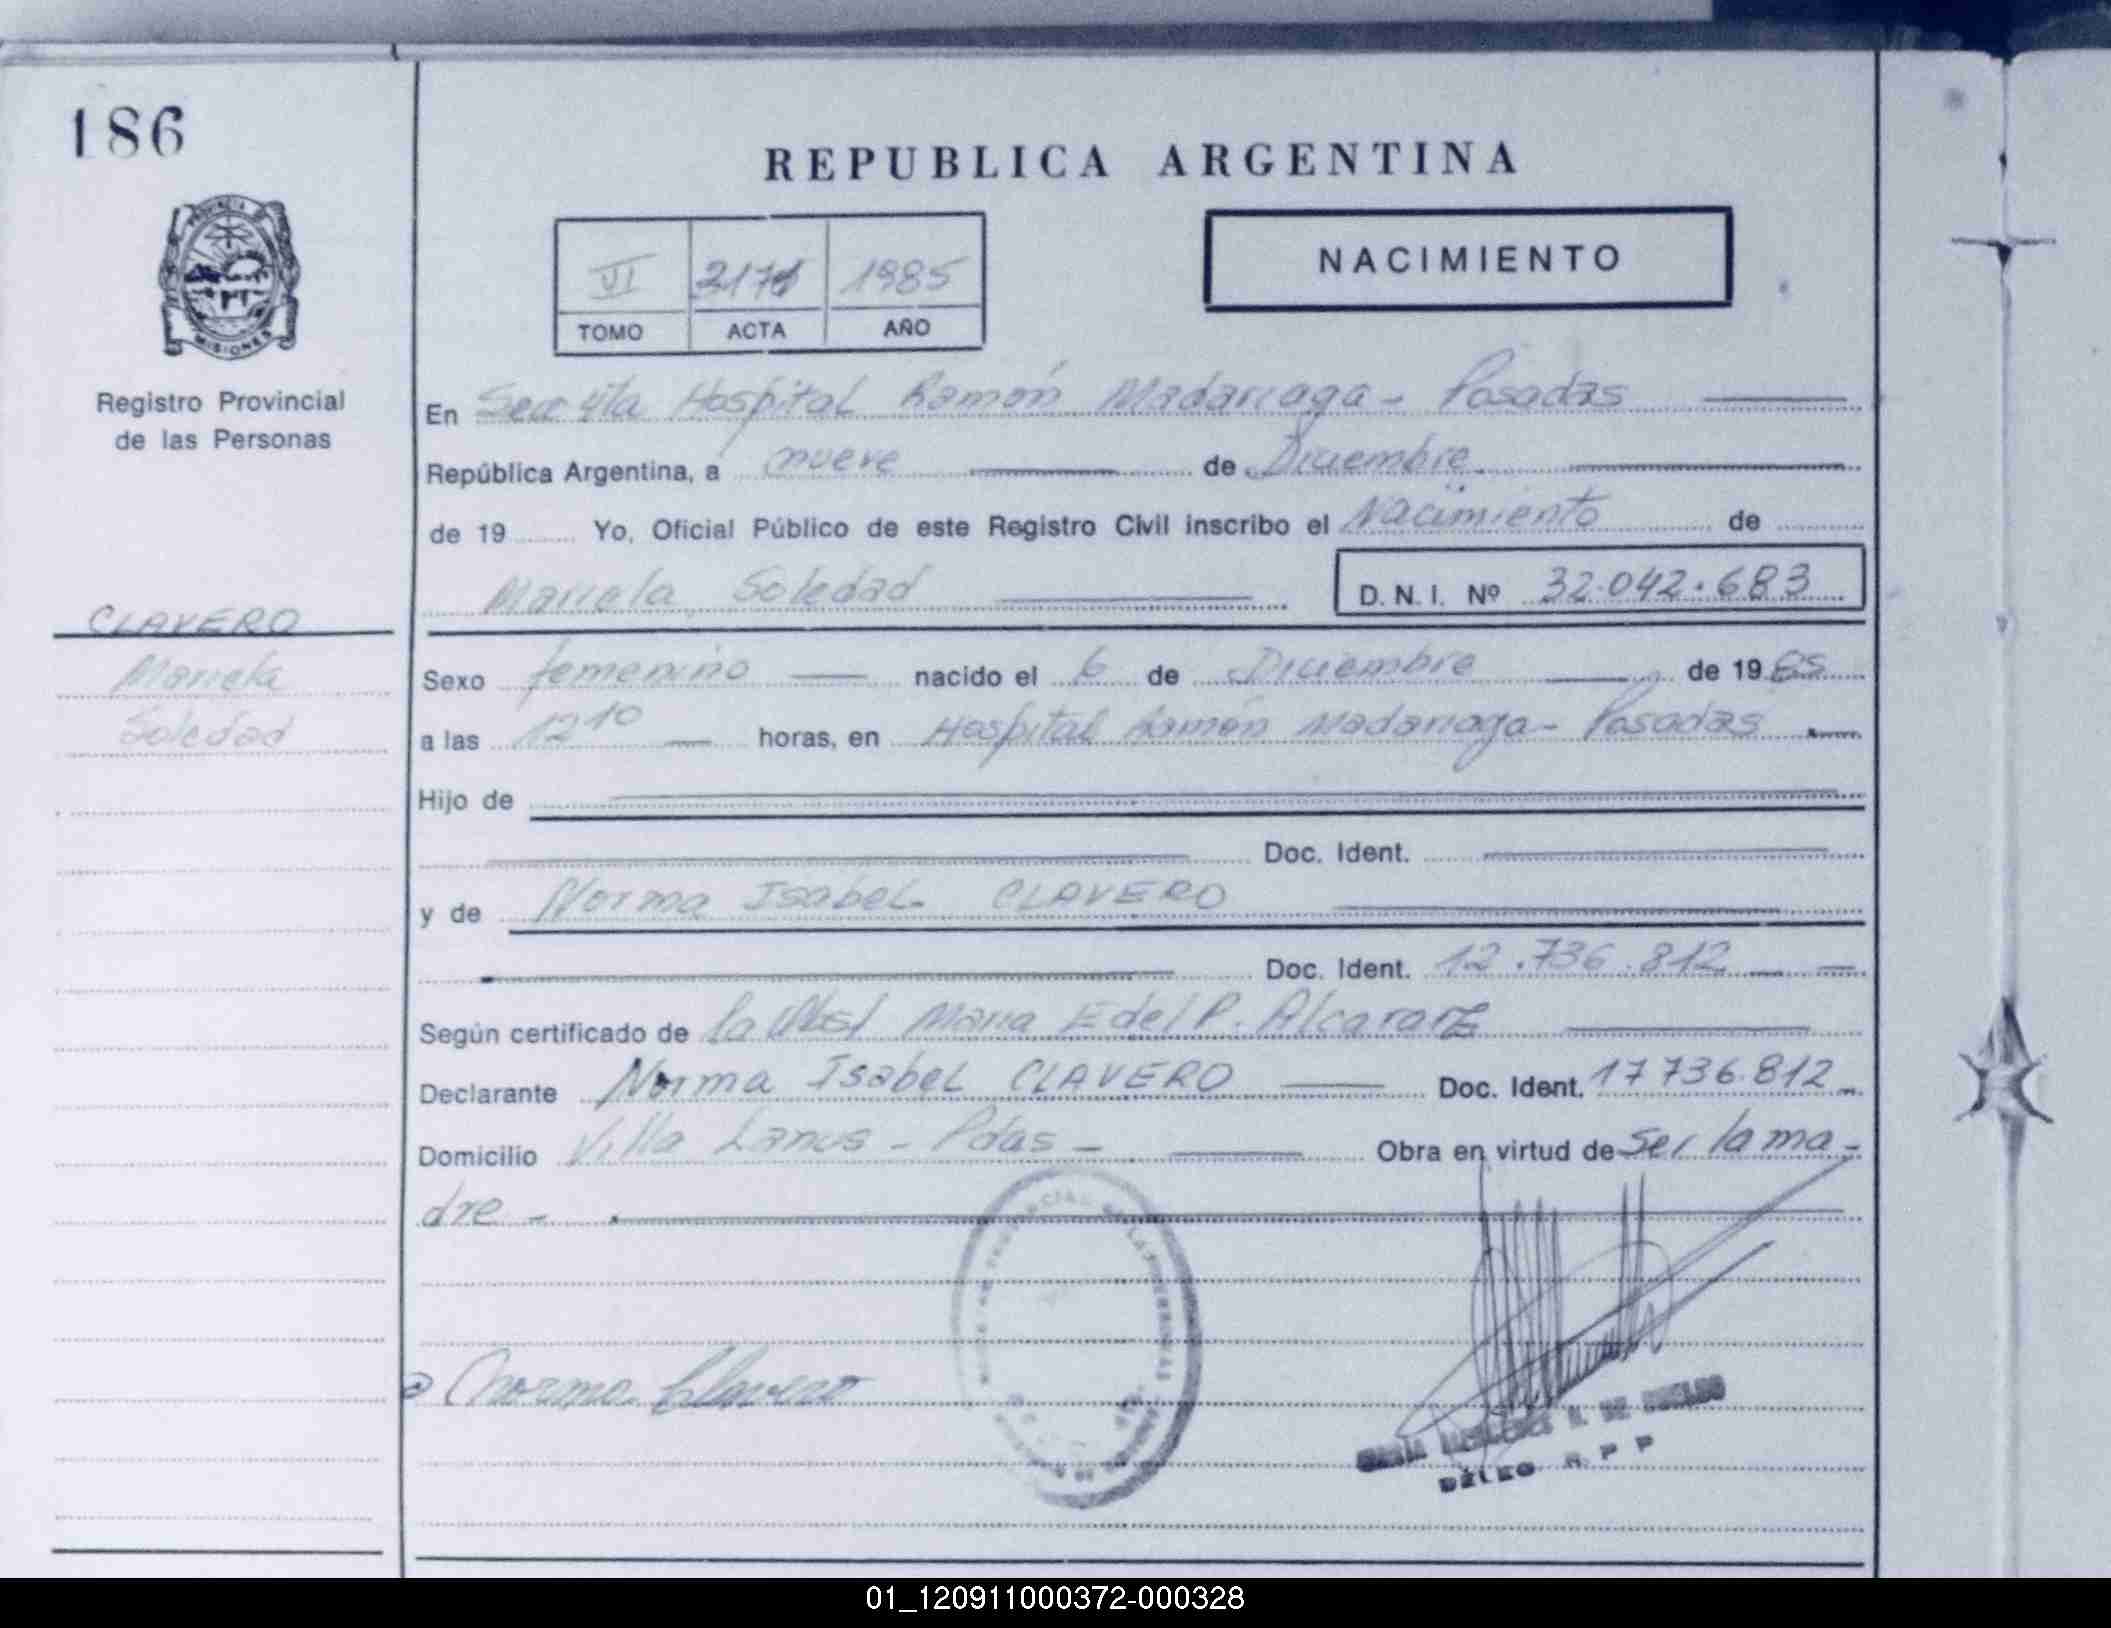 186
REPUBLICA ARGENTINA
PROVINCIA DE
MISIONES
Registro Provincial
de las Personas
VI 1985
TOMO ACTA AÑO
NACIMIENTO
En Secc 4ta Hospital Ramón Madariaga - Posadas
República Argentina, a nueve de Diciembre
de 19 Yo, Oficial Público de este Registro Civil inscribo el Nacimiento de
Mariela Soledad D.N.I. Nº 32.042.683
CLAVERO
Mariela
Soledad
Sexo femenino nacido el 6 de Diciembre de 1985
a las 12 10 horas, en Hospital Ramón Madariaga - Posadas
Hijo de
Doc. Ident.
y de Norma Isabel CLAVERO
Doc. Ident. 12.736.812
Según certificado de la Obst Maria Edel P. Alcaraz
Declarante Norma Isabel CLAVERO Doc. Ident. 17 736.812
Domicilio Villa Lanus - Pdas - Obra en virtud de ser la ma-
dre -
Norma Clavero
DELEG R P P
01_120911000372-000328